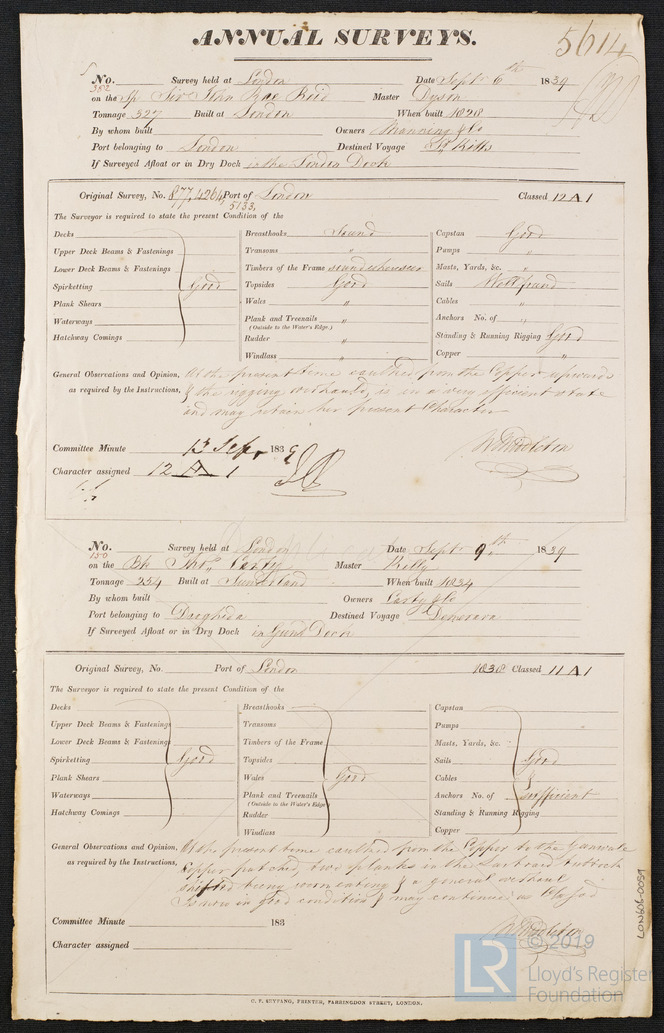 ANNUAL SURVEYS.
5614
No. 382 Survey held at London Date Sept 6th 1839
on the Sp Sir John Rae Reid Master Dyson
Tonnage 327 Built at London When built 1828
By whom built Owners Manning & Co
Port belonging to London Destined Voyage St Kitts
If Surveyed Afloat or in Dry Dock in the London Dock
Original Survey, No. 877, 4264 Port of London Classed 12 A 1
5133,
The Surveyor is required to state the present Condition of the
Decks
Upper Deck Beams & Fastenings
Lower Deck Beams & Fastenings
Spirketting Good
Plank Shears
Waterways
Hatchway Comings
Breasthooks Sound
Transoms "
Timbers of the Frame
Topsides Good
Wales "
Plank and Treenails "
(Outside to the Water's Edge.)
Rudder "
Windlass "
Capstan Good
Pumps "
Masts, Yards, &c. "
Sails Well found
Cables "
Anchors No. of "
Standing & Running Rigging Good
Copper "
General Observations and Opinion, At the present time caulked from the Copper upwards
as required by the Instructions, & the rigging overhauled, is in a very efficient state
and may retain her present Character
Committee Minute 13 Sepr 1839
Character assigned 12 A 1
No. 150 Survey held at London Date Sept 9th 1839
on the Bk Thos. Carty Master Kelly
Tonnage 254 Built at Sunderland When built 1834
By whom built Owners Carty & Co
Port belonging to Drogheda Destined Voyage Demerara
If Surveyed Afloat or in Dry Dock in Dock
Original Survey, No. Port of London 1838 Classed 11 A 1
The Surveyor is required to state the present Condition of the
Decks
Upper Deck Beams & Fastenings
Lower Deck Beams & Fastenings
Spirketting Good
Plank Shears
Waterways
Hatchway Comings
Breasthooks
Transoms
Timbers of the Frame
Topsides
Wales Good
Plank and Treenails
(Outside to the Water's Edge)
Rudder
Windlass
Capstan
Pumps
Masts, Yards, &c.
Sails Good
Cables &
Anchors No. of sufficient
Standing & Running Rigging
Copper
General Observations and Opinion, At the present time caulked from the Copper to the Gunwale
as required by the Instructions, Copper patched, two planks in the Larboard
shifted being & a general overhaul
is now in good condition & may continued as Classed
Committee Minute 183
Character assigned
C. F. SEYFANG, PRINTER, FARRINGDON STREET, LONDON.
LON606-0059
LR © 2019
Lloyd's Register
Foundation